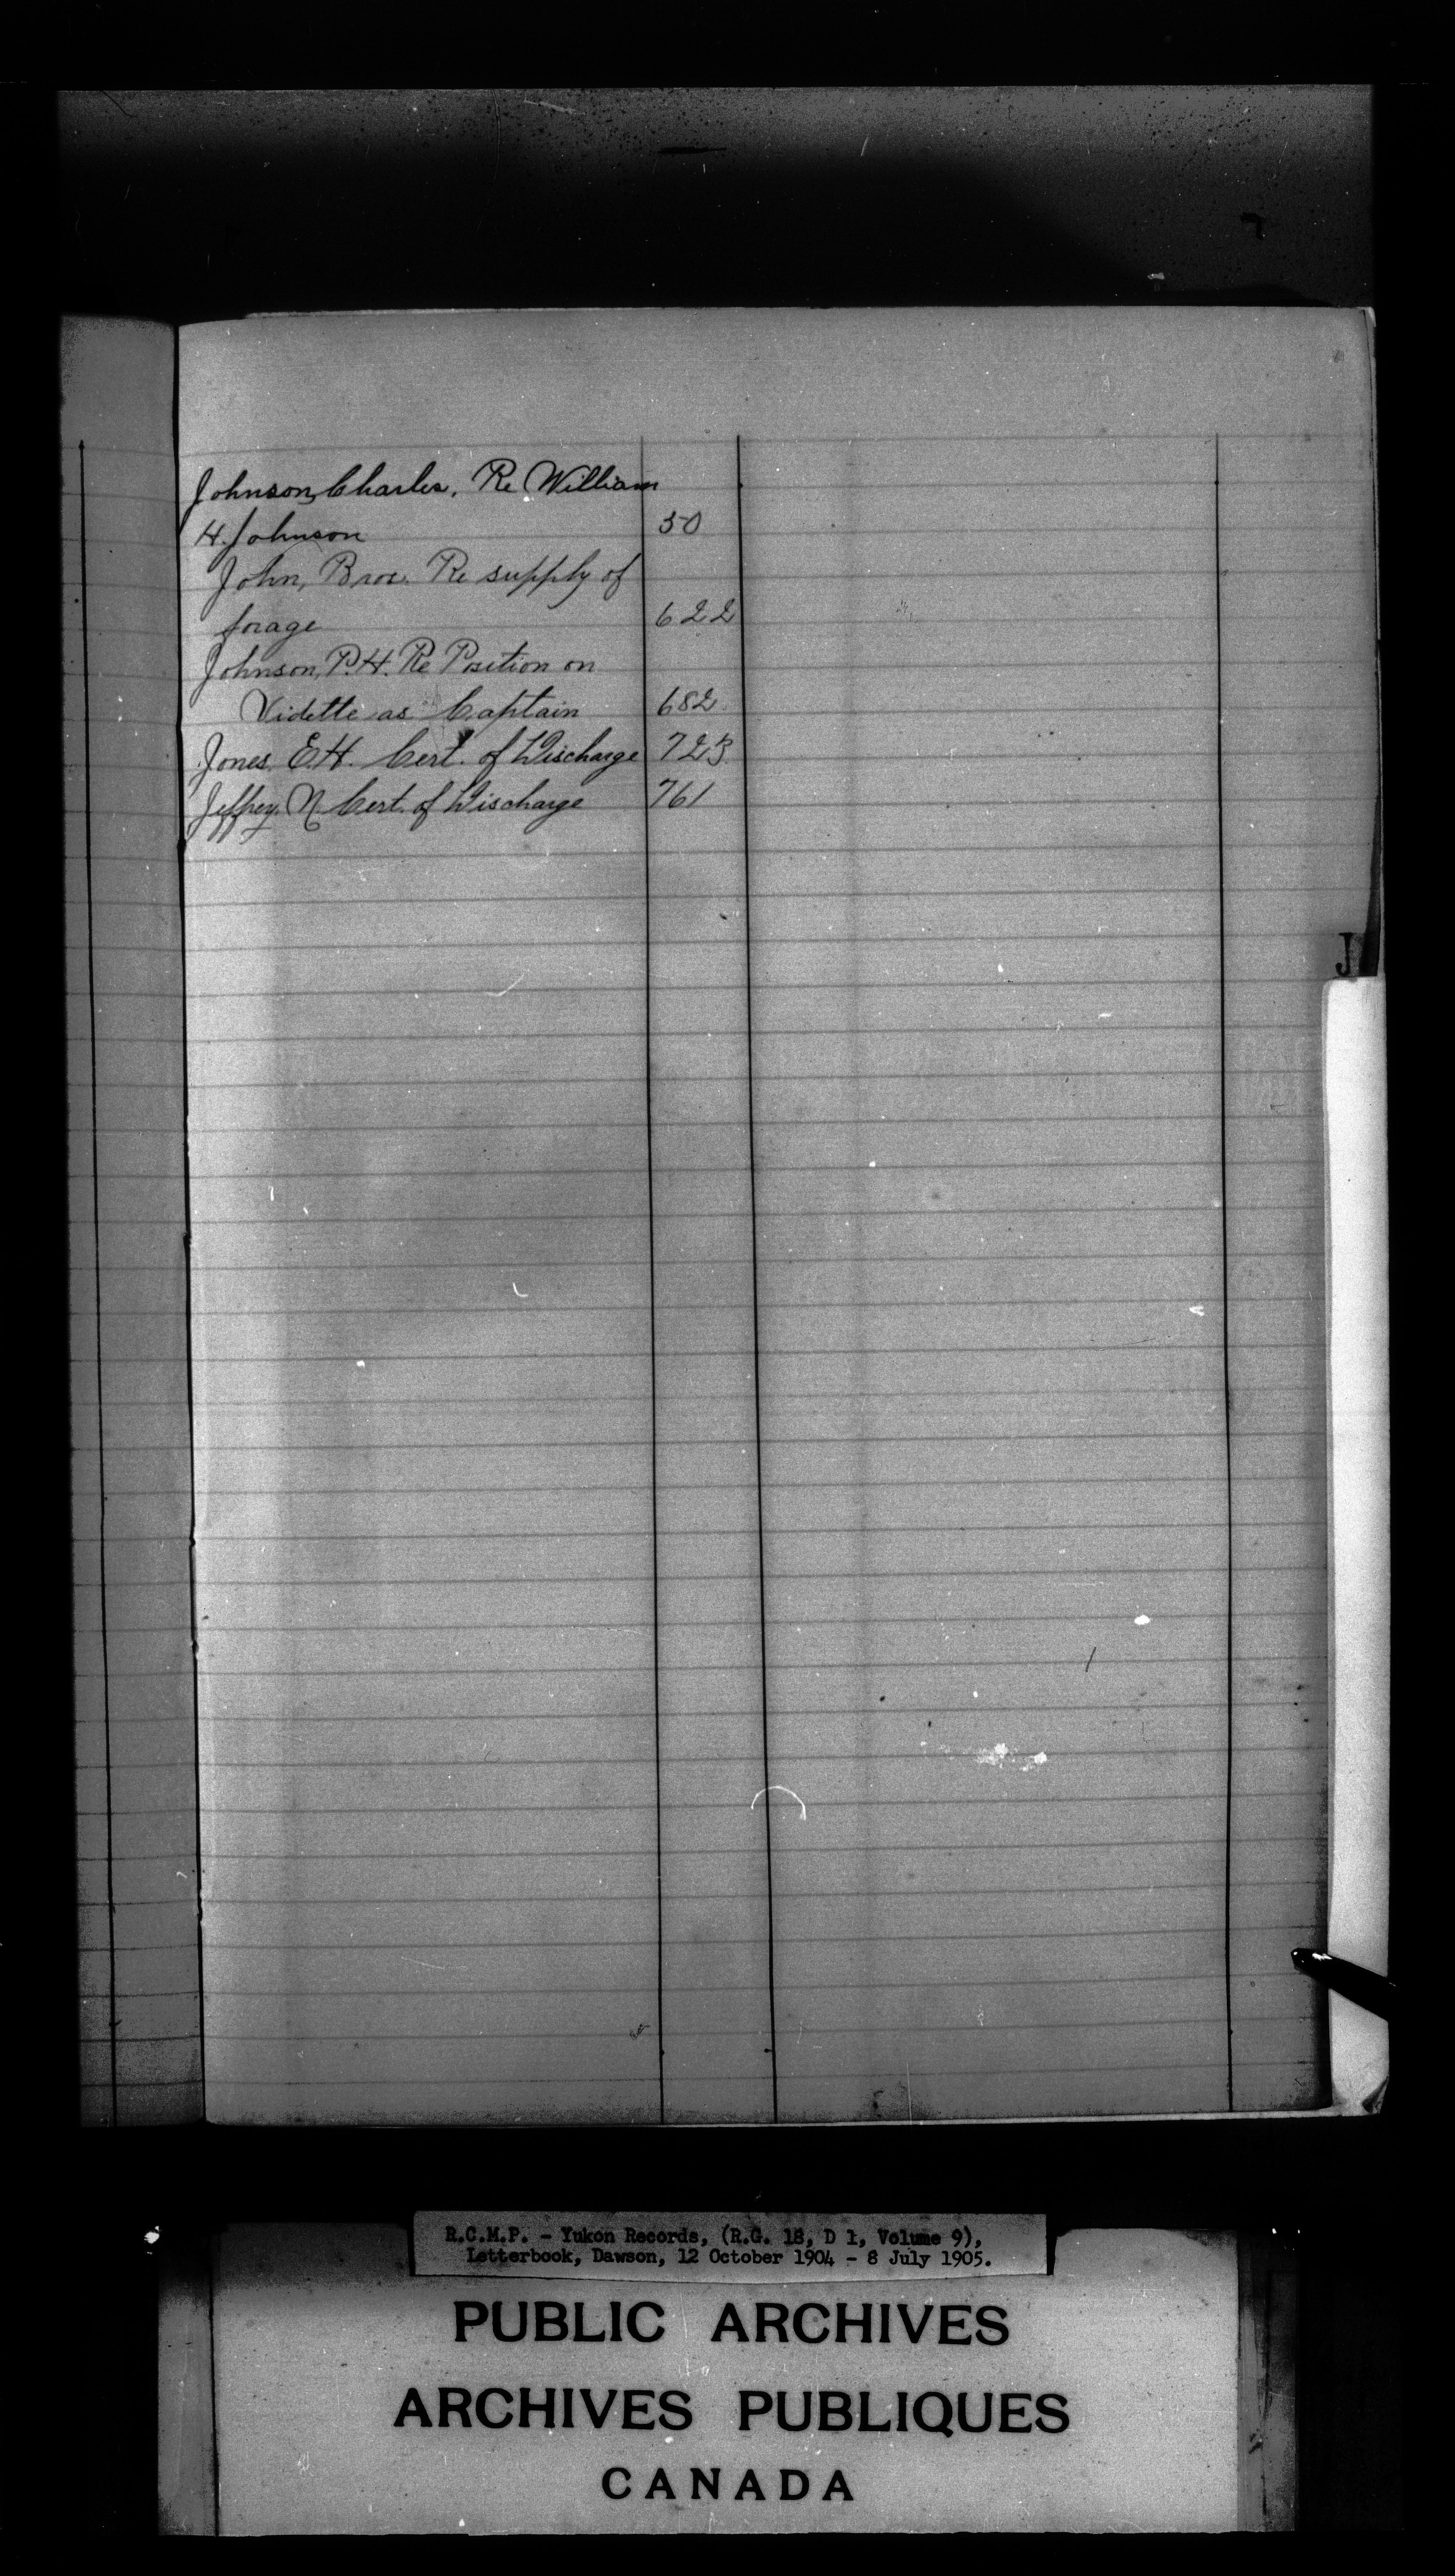 Johnson, Charles. Re William
H. Johnson 50
John, Bros. Re supply of
forage 622
Johnson, P.H. Re Position on
Vidette as Captain 682
Jones. E.H. Cert. of Discharge 723
Jeffrey. N Cert. of Discharge 761
J
R.C.M.P. - Yukon Records, (R.G. 18, D 1, Volume 9),
Letterbook, Dawson, 12 October 1904 - 8 July 1905.
PUBLIC ARCHIVES
ARCHIVES PUBLIQUES
CANADA